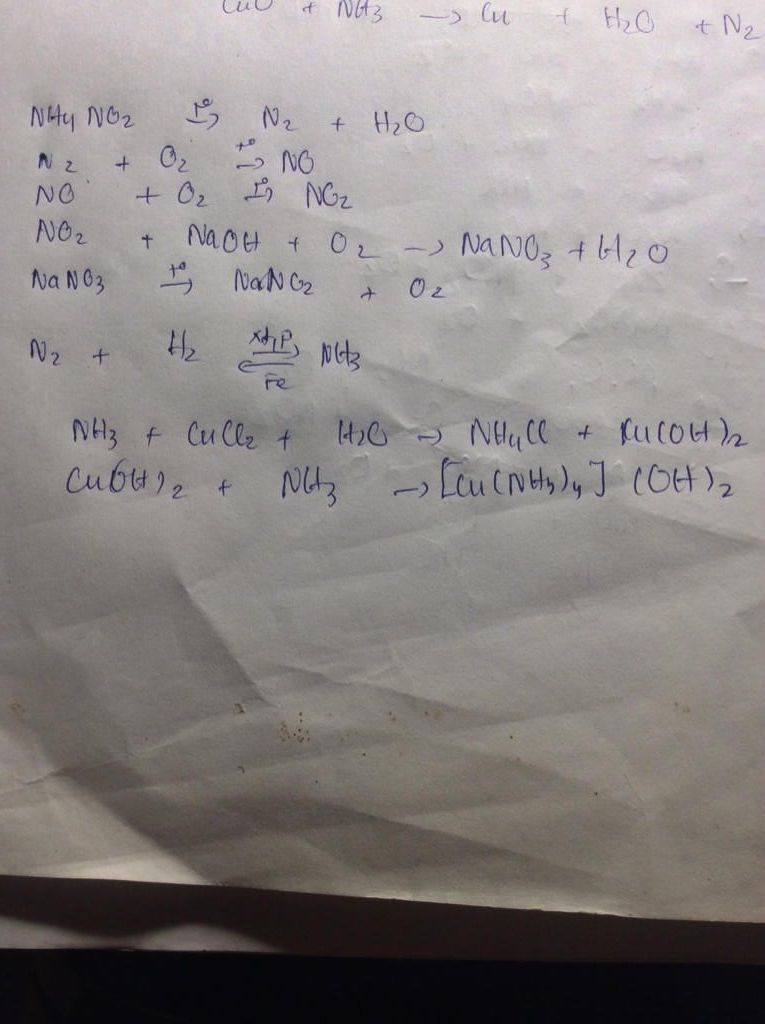 CuO + NH3 → Cu + H2O + N2
NH4NO2 t°→ N2 + H2O
N2 + O2 t°→ NO
NO + O2 t°→ NO2
NO2 + NaOH + O2 → NaNO3 + H2O
NaNO3 t°→ NaNO2 + O2
N2 + H2 xt,P⇌Fe NH3
NH3 + CuCl2 + H2O → NH4Cl + Cu(OH)2
Cu(OH)2 + NH3 → [Cu(NH3)4] (OH)2